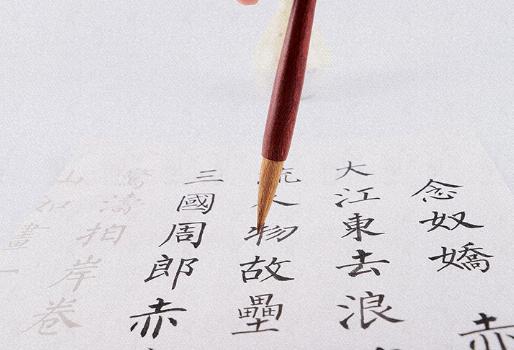 念奴嬌 赤
大江東去浪
人物故壘
三國周郎赤
驚濤拍岸卷
山如畫一